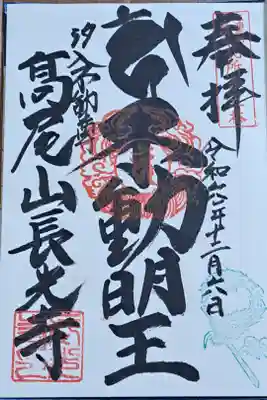 奉拝
令和六年十二月六日
不動明王
汐入不動尊
高尾山長光寺